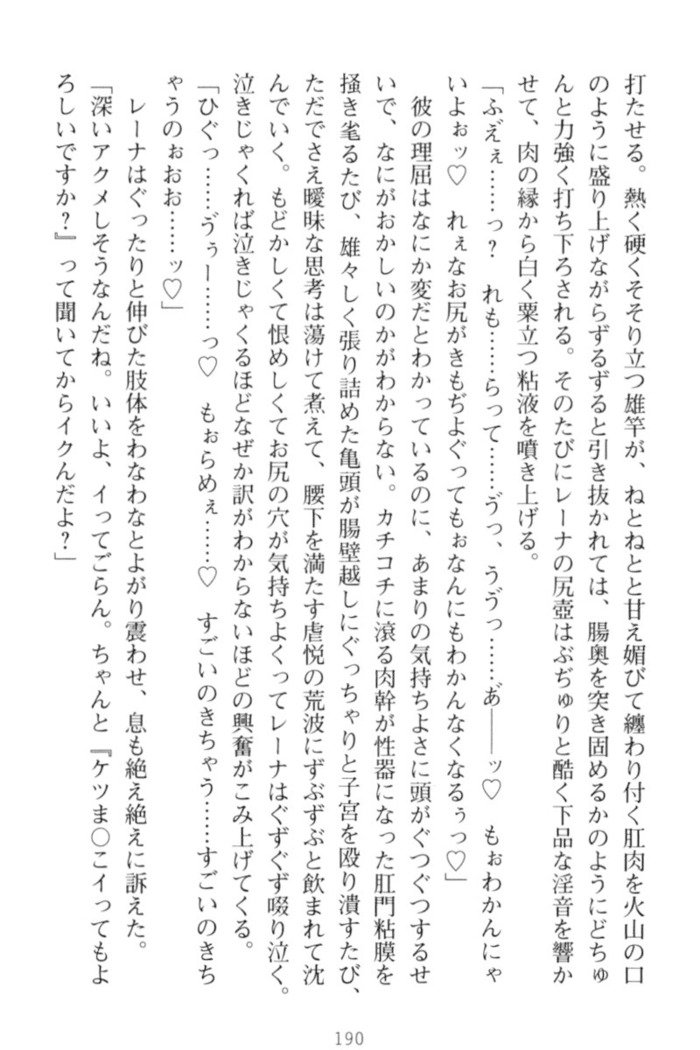 打たせる。熱く硬くそそり立つ雄竿が、ねとねとと甘え媚びて纏わり付く肛肉を火山の口
のように盛り上げながらずるずると引き抜かれては、腸奥を突き固めるかのようにどちゅ
んと力強く打ち下ろされる。そのたびにレーナの尻壺はぶぢゅりと酷く下品な淫音を響か
せて、肉の縁から白く粟立つ粘液を噴き上げる。
「ふえ゛ぇ……っ？　れも……らって……ゔっ、うゔっ……あ゛――ッ♡　もぉわかんにゃ
いよぉッ♡　れぇなお尻がきもぢよぐってもぉなんにもわかんなくなるぅっ♡」
彼の理屈はなにか変だとわかっているのに、あまりの気持ちよさに頭がぐつぐつするせ
いで、なにがおかしいのかがわからない。カチコチに滾る肉幹が性器になった肛門粘膜を
掻き毟るたび、雄々しく張り詰めた亀頭が腸壁越しにぐっちゃりと子宮を殴り潰すたび、
ただでさえ曖昧な思考は蕩けて煮えて、腰下を満たす虐悦の荒波にずぶずぶと飲まれて沈
んでいく。もどかしくて恨めしくてお尻の穴が気持ちよくってレーナはぐずぐず啜り泣く。
泣きじゃくれば泣きじゃくるほどなぜか訳がわからないほどの興奮がこみ上げてくる。
「ひぐっ……ゔぅー……っ♡　もぉらめぇ……♡　すごいのきちゃう……すごいのきち
ゃうのぉおお……ッ♡」
レーナはぐったりと伸びた肢体をわなわなとよがり震わせ、息も絶え絶えに訴えた。
「深いアクメしそうなんだね。いいよ、イってごらん。ちゃんと『ケツま○こイってもよ
ろしいですか？』って聞いてからイクんだよ？」
190